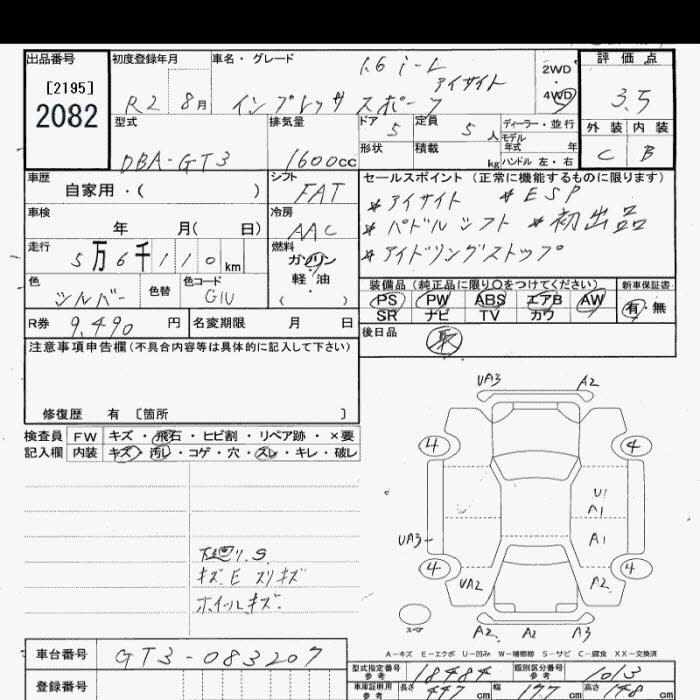 出品番号 初度登録年月 車名・グレード 1.6 i-L アイサイト 2WD・4WD 評価点
[2195]
2082
R2 8月 インプレッサ スポーツ 3.5
型式 排気量 ドア 5 定員 5人 ディーラー・並行 外装 内装
モデル年式 年
DBA-GT3 1600cc 形状 積載 kg ハンドル 左・右 C B
車歴 シフト セールスポイント (正常に機能するものに限ります)
自家用・( ) FAT *アイサイト *ESP
車検 冷房 *パドルシフト *初出品
年 月( 日) AAC *アイドリングストップ
走行 燃料
5万6千110km ガソリン
軽・油
( )
色 色替 色コード 装備品 (純正品に限り○をつけてください) 新車保証書
シルバー G1U PS PW ABS エアB AW 有・無
SR ナビ TV カワ
R券 9,490円 名変期限 月 日 後日品
取
注意事項申告欄(不具合内容等は具体的に記入して下さい)
修復歴 有 〔箇所 〕
検査員 FW キズ・飛石・ヒビ割・リペア跡・×要
記入欄 内装 キズ・汚レ・コゲ・穴・スレ・キレ・破レ
UA3 A2
4 4
U1
A1
UA3 A1
4 4
UA2 A2
下廻り.S
キズE スリキズ
ホイールキズ
スペア A2 A2 A2
A-キズ E-エクボ U-凹み W-補修跡 S-サビ C-腐食 XX-交換済
車台番号 GT3-083207
型式指定番号 参考 18484 類別区分番号 参考 1013
登録番号 車庫証明用 参考 長さ 447cm 幅 177cm 高さ 148cm